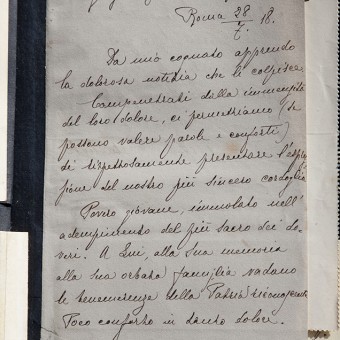 Roma 28/7. 18.
Da mio cognato apprendo
la dolorosa notizia che le colpisce
Compenetrati della immensità
del loro dolore, ci permettiamo (se
possono valere parole e conforti)
di rispettosamente presentare l'espres
sione del nostro più sincero cordoglio
Povero giovane, immolato nell'
adempimento del più sacro dei do
veri. A Lui, alla sua memoria
alla sua orbata famiglia vadano
le benemerenze della Patria riconoscente
Poco conforto in tanto dolore.